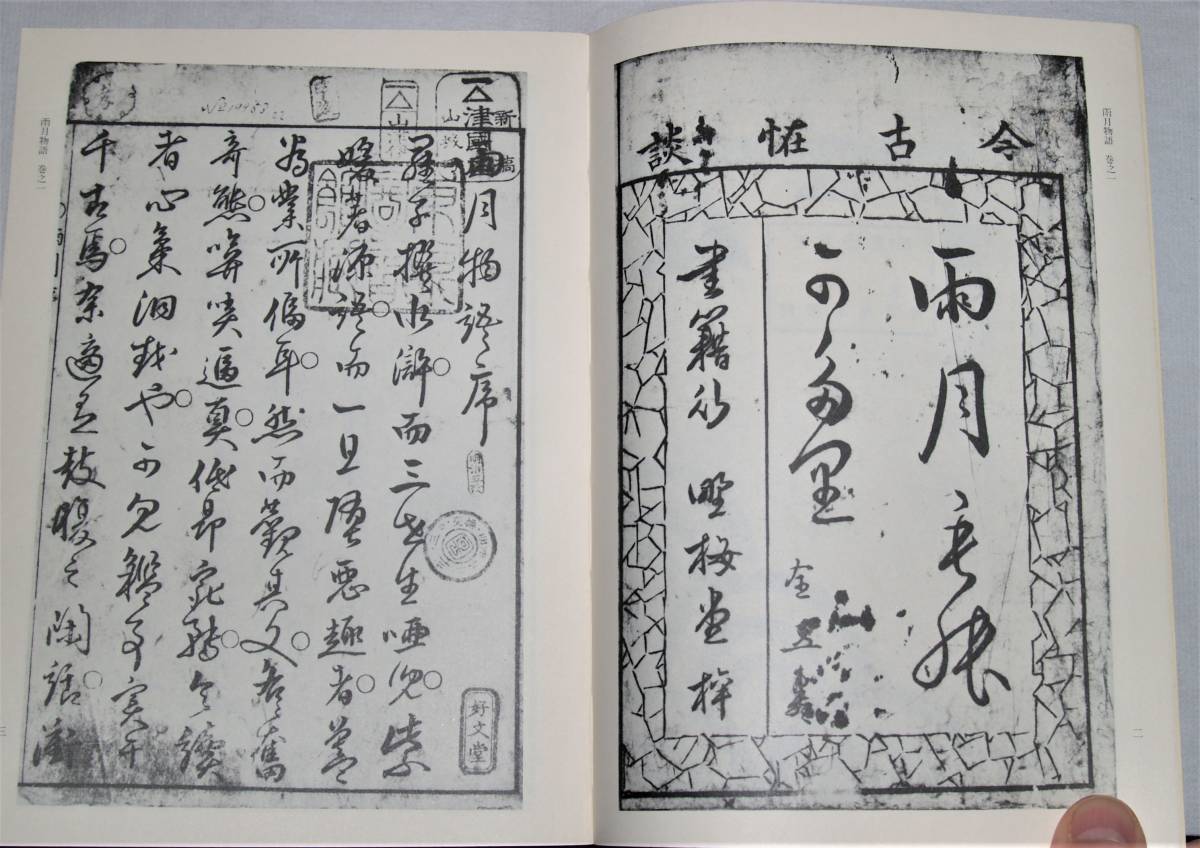 雨月物語 巻之一
今古恠談
雨月毛能
可多里 全五
書籍行 野梅堂梓
二
新
津國
山
雨月物語序
羅子撰水滸。而三世生唖児。紫
媛著源語。而一旦堕悪趣者。蓋
為業所偪耳。然而觀其文。各奮
奇態。揜哢逼真。低昂宛轉。令讀
者心氣洞越也。可見鑑事実于
千古焉。余適有鼓腹之閑話。衝
好文堂
雨月物語 巻之一
三